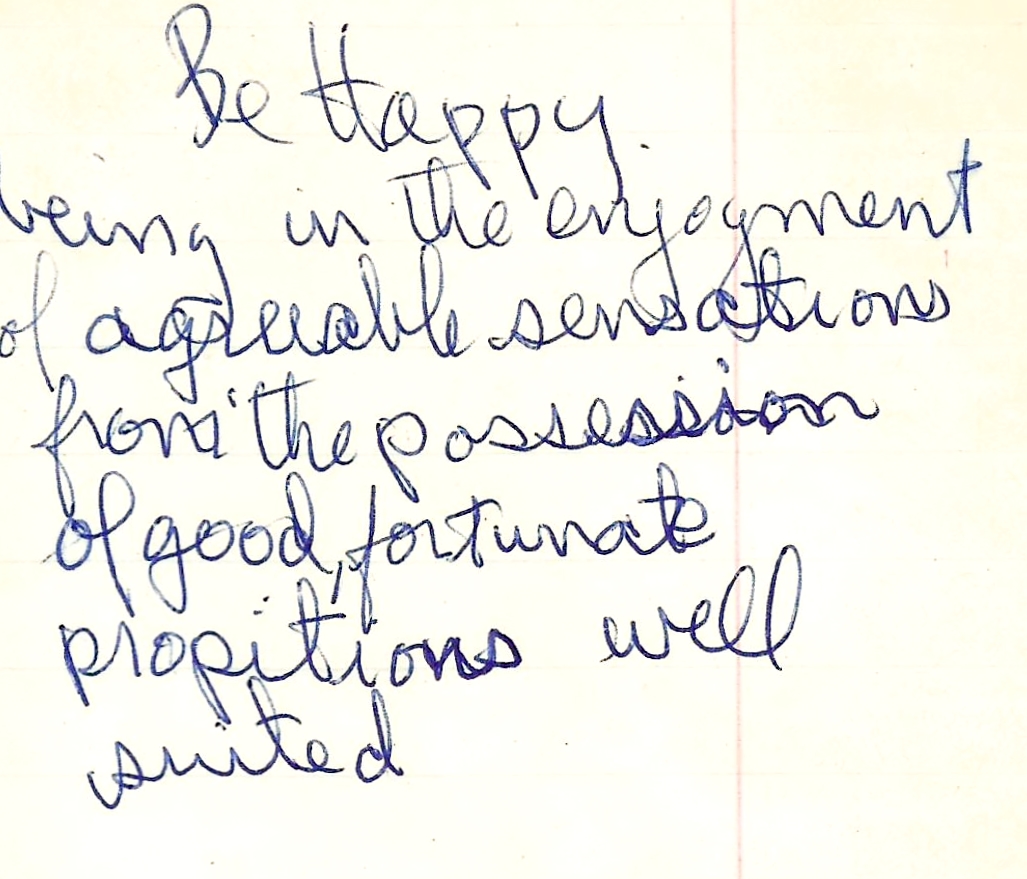 Be Happy
being in the enjoyment
of agreeable sensations
from the possession
of good, fortunate
propitions well
suited